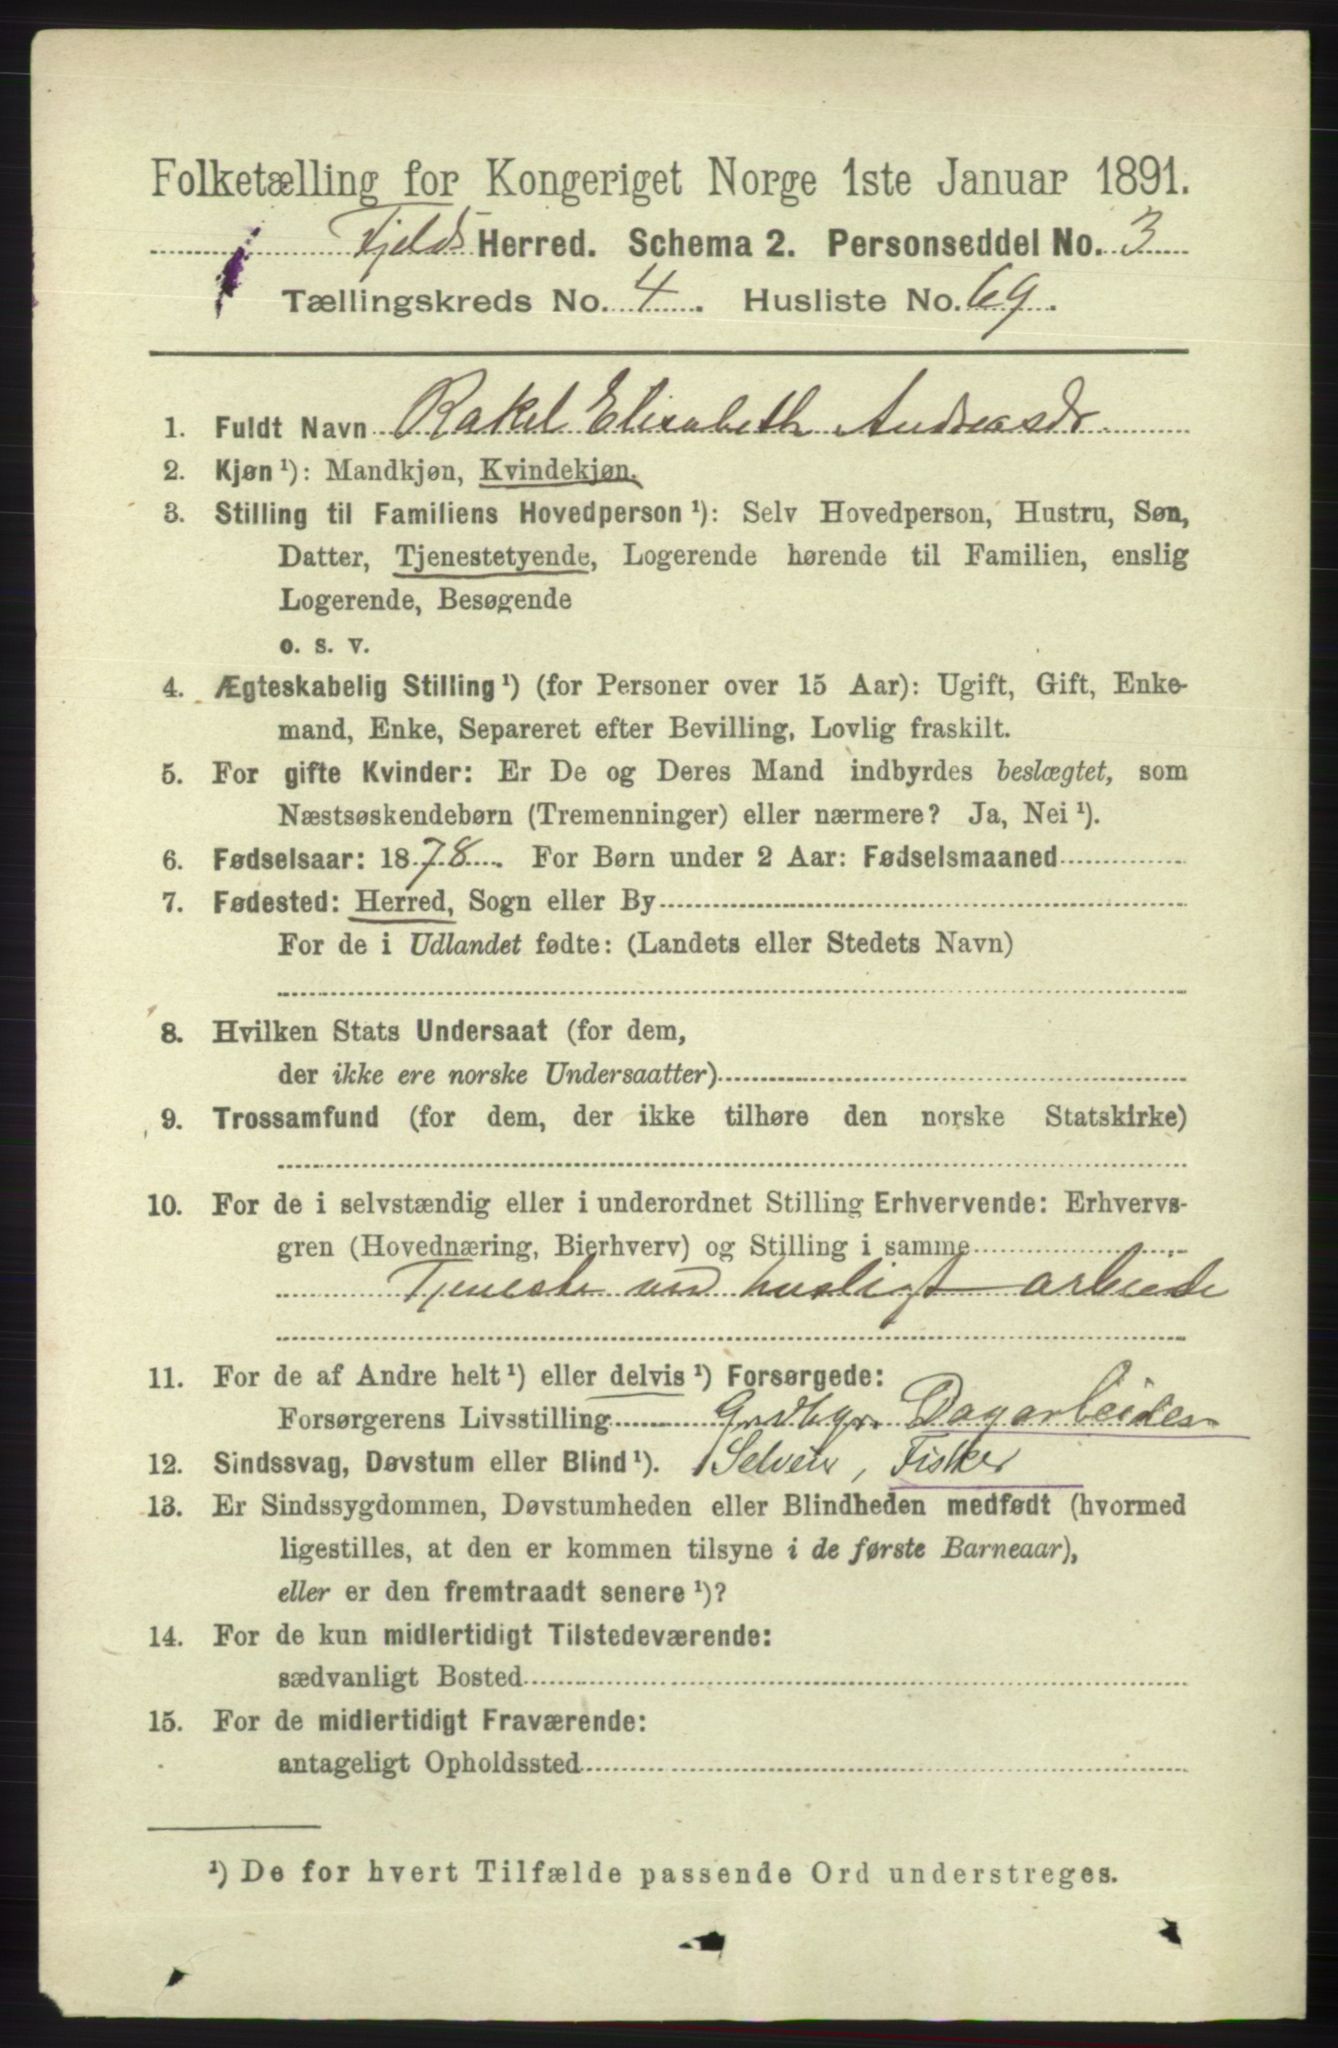 Folketælling for Kongeriget Norge 1ste Januar 1891.
Fjelds Herred. Schema 2. Personseddel No. 3
Tællingskreds No. 4. Husliste No. 69.
1. Fuldt Navn Rakel Elisabeth Andreasdr
2. Kjøn ¹): Mandkjøn, Kvindekjøn.
3. Stilling til Familiens Hovedperson ¹): Selv Hovedperson, Hustru, Søn,
Datter, Tjenestetyende, Logerende hørende til Familien, enslig
Logerende, Besøgende
o. s. v.
4. Ægteskabelig Stilling ¹) (for Personer over 15 Aar): Ugift, Gift, Enke-
mand, Enke, Separeret efter Bevilling, Lovlig fraskilt.
5. For gifte Kvinder: Er De og Deres Mand indbyrdes beslægtet, som
Næstsøskendebørn (Tremenninger) eller nærmere? Ja, Nei ¹).
6. Fødselsaar: 1878. For Børn under 2 Aar: Fødselsmaaned
7. Fødested: Herred, Sogn eller By
For de i Udlandet fødte: (Landets eller Stedets Navn)
8. Hvilken Stats Undersaat (for dem,
der ikke ere norske Undersaatter)
9. Trossamfund (for dem, der ikke tilhøre den norske Statskirke)
10. For de i selvstændig eller i underordnet Stilling Erhvervende: Erhvervs-
gren (Hovednæring, Bierhverv) og Stilling i samme
Tjeneste ved husligt arbeide
11. For de af Andre helt ¹) eller delvis ¹) Forsørgede:
Forsørgerens Livsstilling Grdbgr. Dagarbeider
12. Sindssvag, Døvstum eller Blind ¹). Selveier, Fisker
13. Er Sindssygdommen, Døvstumheden eller Blindheden medfødt (hvormed
ligestilles, at den er kommen tilsyne i de første Barneaar),
eller er den fremtraadt senere ¹)?
14. For de kun midlertidigt Tilstedeværende:
sædvanligt Bosted
15. For de midlertidigt Fraværende:
antageligt Opholdssted
¹) De for hvert Tilfælde passende Ord understreges.